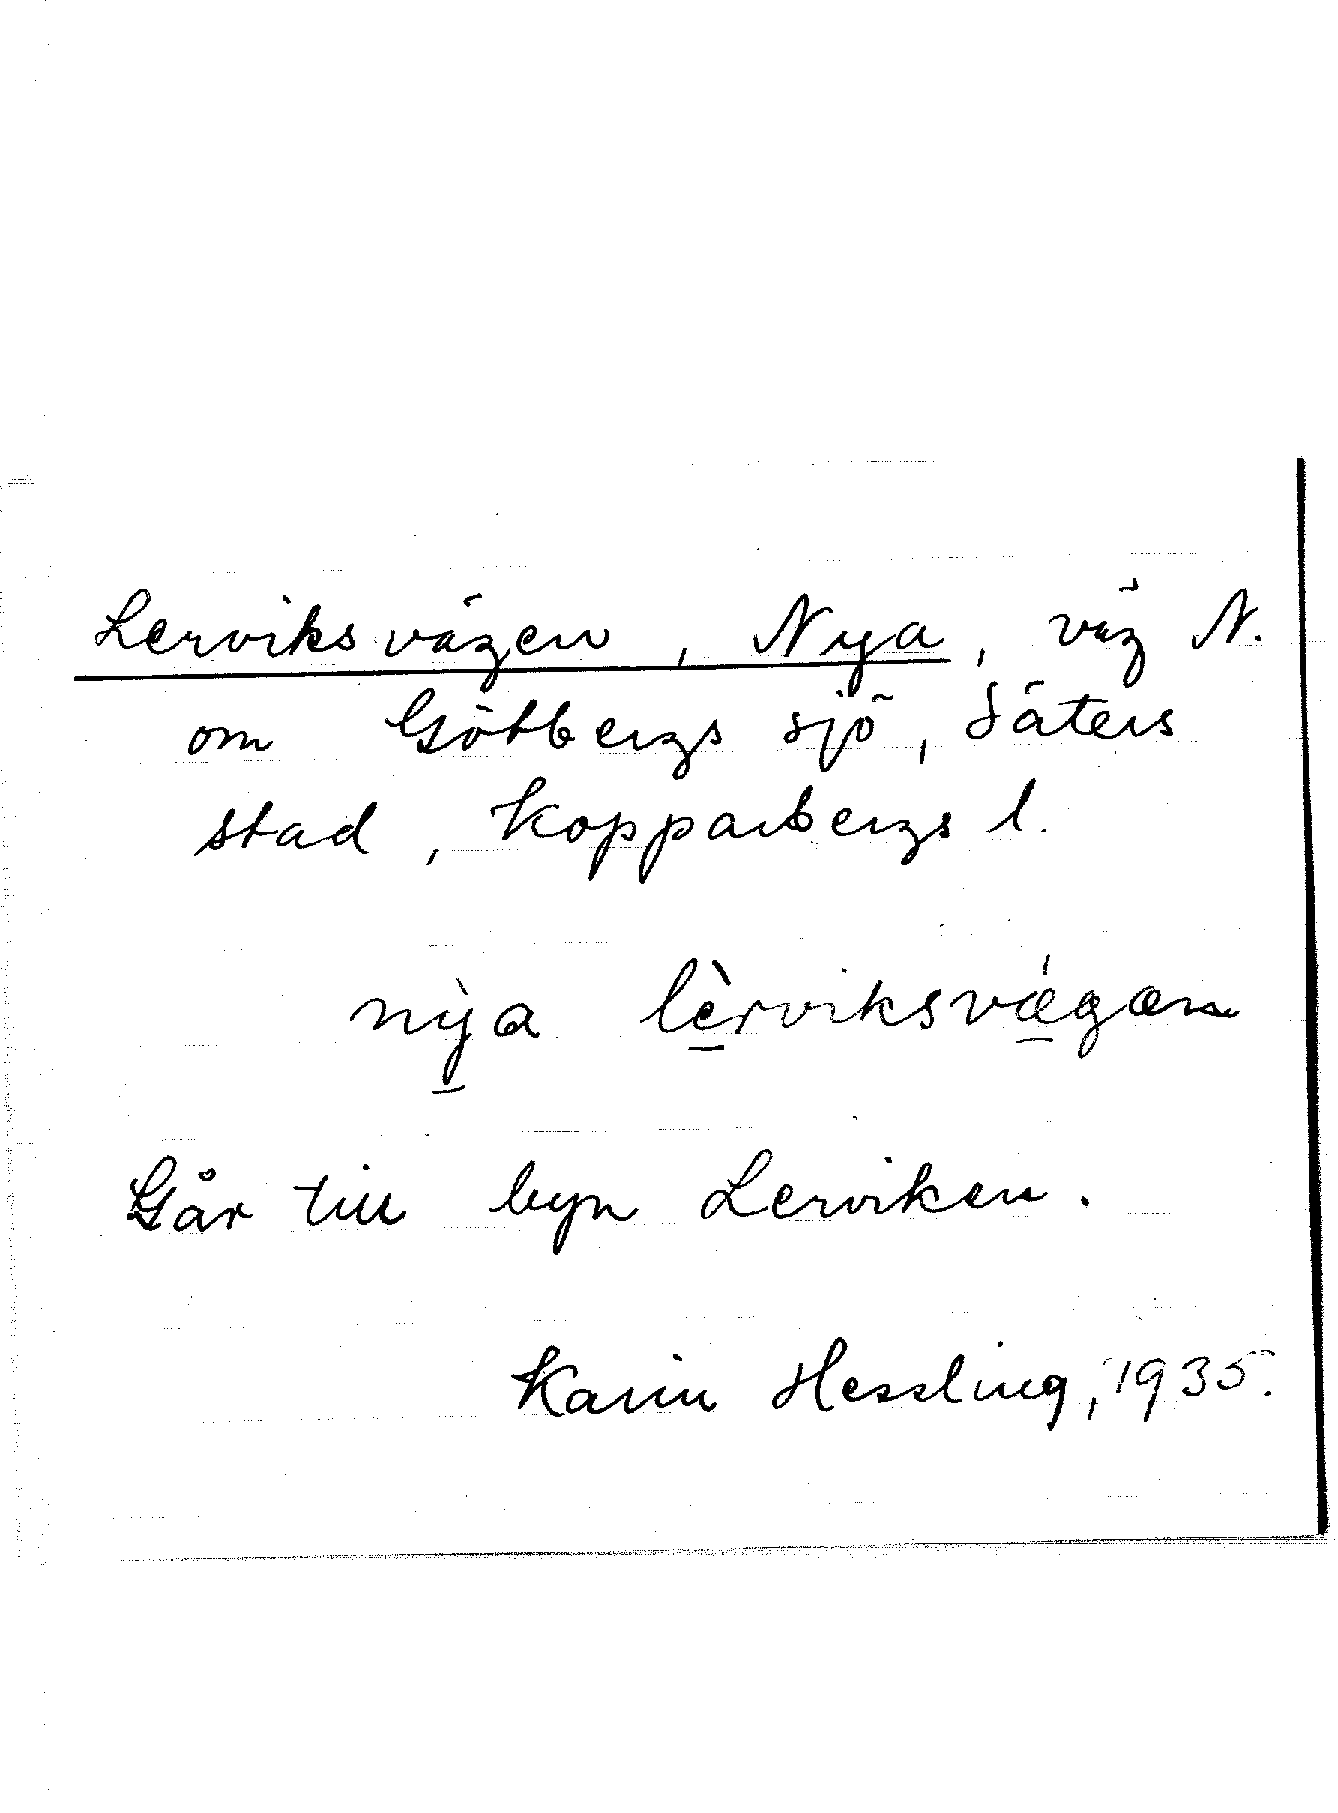 Lerviksvägen, Nya, väg N.
om Götbergs sjö, Säters
stad, Kopparbergs l.
nỳa lèrviksvǽgæn
Går till byn Lerviken.
Karin Hessling, 1935.